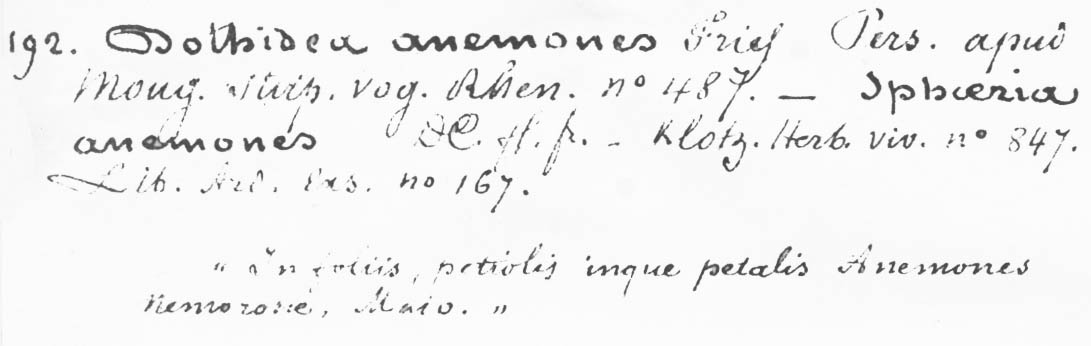 192. Dothidea anemones Fries Pers. apud
Moug. Stirp. vog. Rhen. nº 487. — Sphæria
anemones DC. fl. fr. - Klotz. Herb. viv. nº 847.
Lib. Ard. Exs. no 167.
"In foliis, petiolis inque petalis Anemones
nemorosæ, Maio."